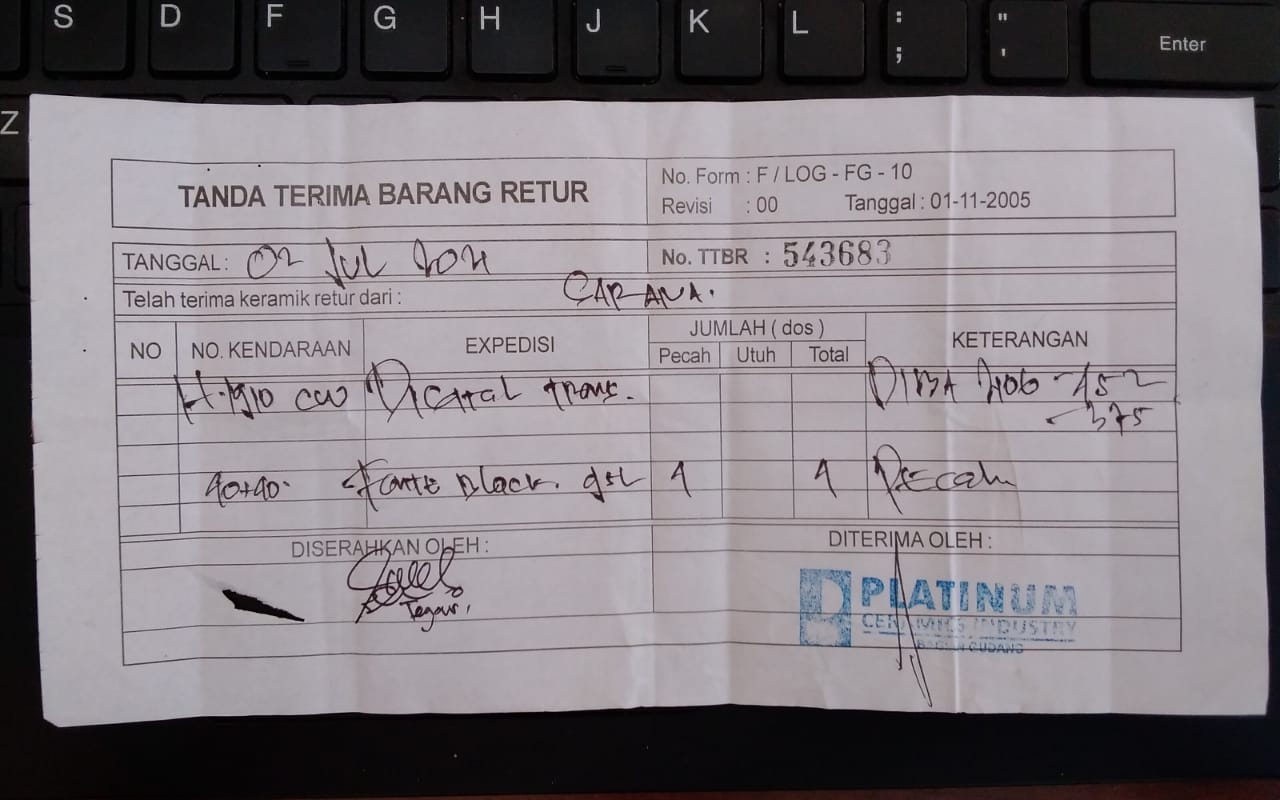 S D F G H J K L : ; " ' Enter
Z
TANDA TERIMA BARANG RETUR
No. Form : F / LOG - FG - 10
Revisi : 00 Tanggal : 01-11-2005
TANGGAL : 02 Jul 2021
No. TTBR : 543683
Telah terima keramik retur dari : CARANA.
NO NO. KENDARAAN EXPEDISI JUMLAH ( dos ) KETERANGAN
Pecah Utuh Total
Digital trans.
40+40. Black. 1 1 Pecah
DISERAHKAN OLEH : DITERIMA OLEH :
PLATINUM
CERAMICS INDUSTRY
GUDANG